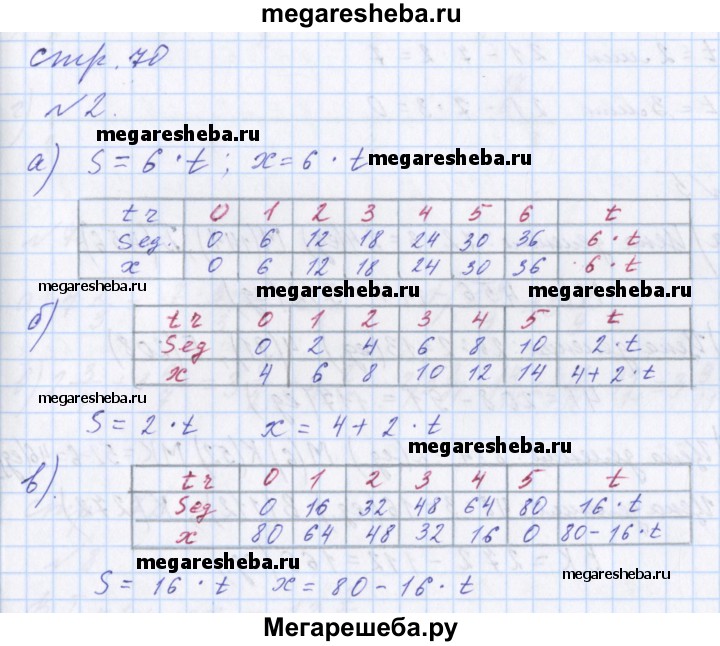 megaresheba.ru
стр. 70
№ 2.
megaresheba.ru
а) S = 6 · t ; x = 6 · t megaresheba.ru
t г 0 1 2 3 4 5 6 t
S ед. 0 6 12 18 24 30 36 6 · t
x 0 6 12 18 24 30 36 6 · t
megaresheba.ru megaresheba.ru megaresheba.ru
б) t г 0 1 2 3 4 5 t
S ед 0 2 4 6 8 10 2 · t
x 4 6 8 10 12 14 4 + 2 · t
megaresheba.ru
S = 2 · t x = 4 + 2 · t
megaresheba.ru
в). t г 0 1 2 3 4 5 t
S ед 0 16 32 48 64 80 16 · t
x 80 64 48 32 16 0 80 - 16 · t
megaresheba.ru
S = 16 · t x = 80 - 16 · t
megaresheba.ru
Мегарешеба.ру